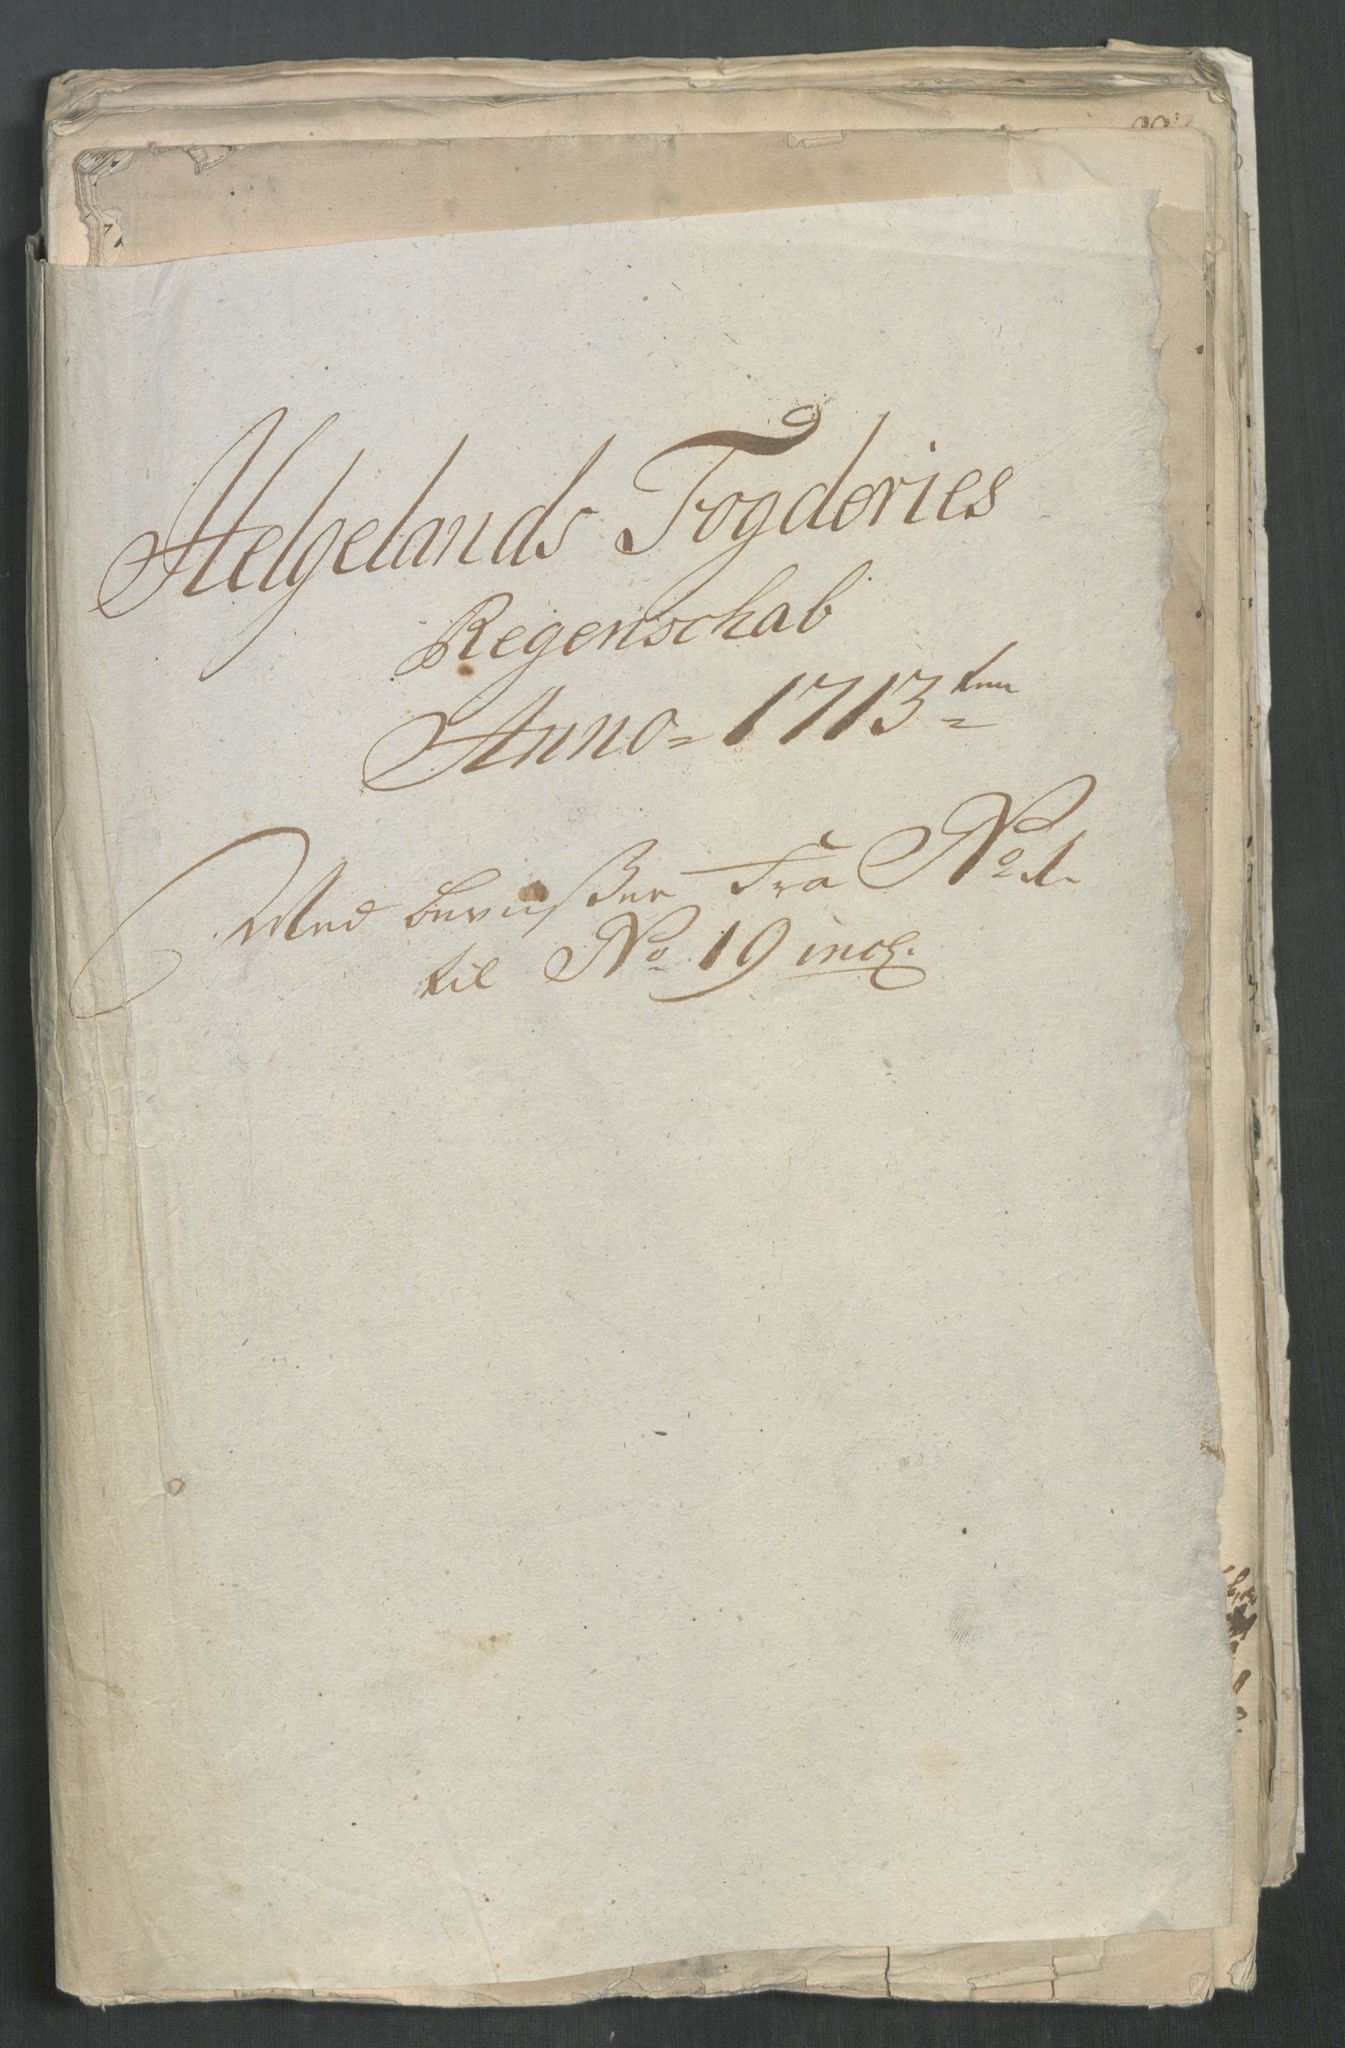 Helgelands Fogderies
Regenschab
Anno = 1713 =
Med beviißer Fra No. 1.
til No. 19 incl.